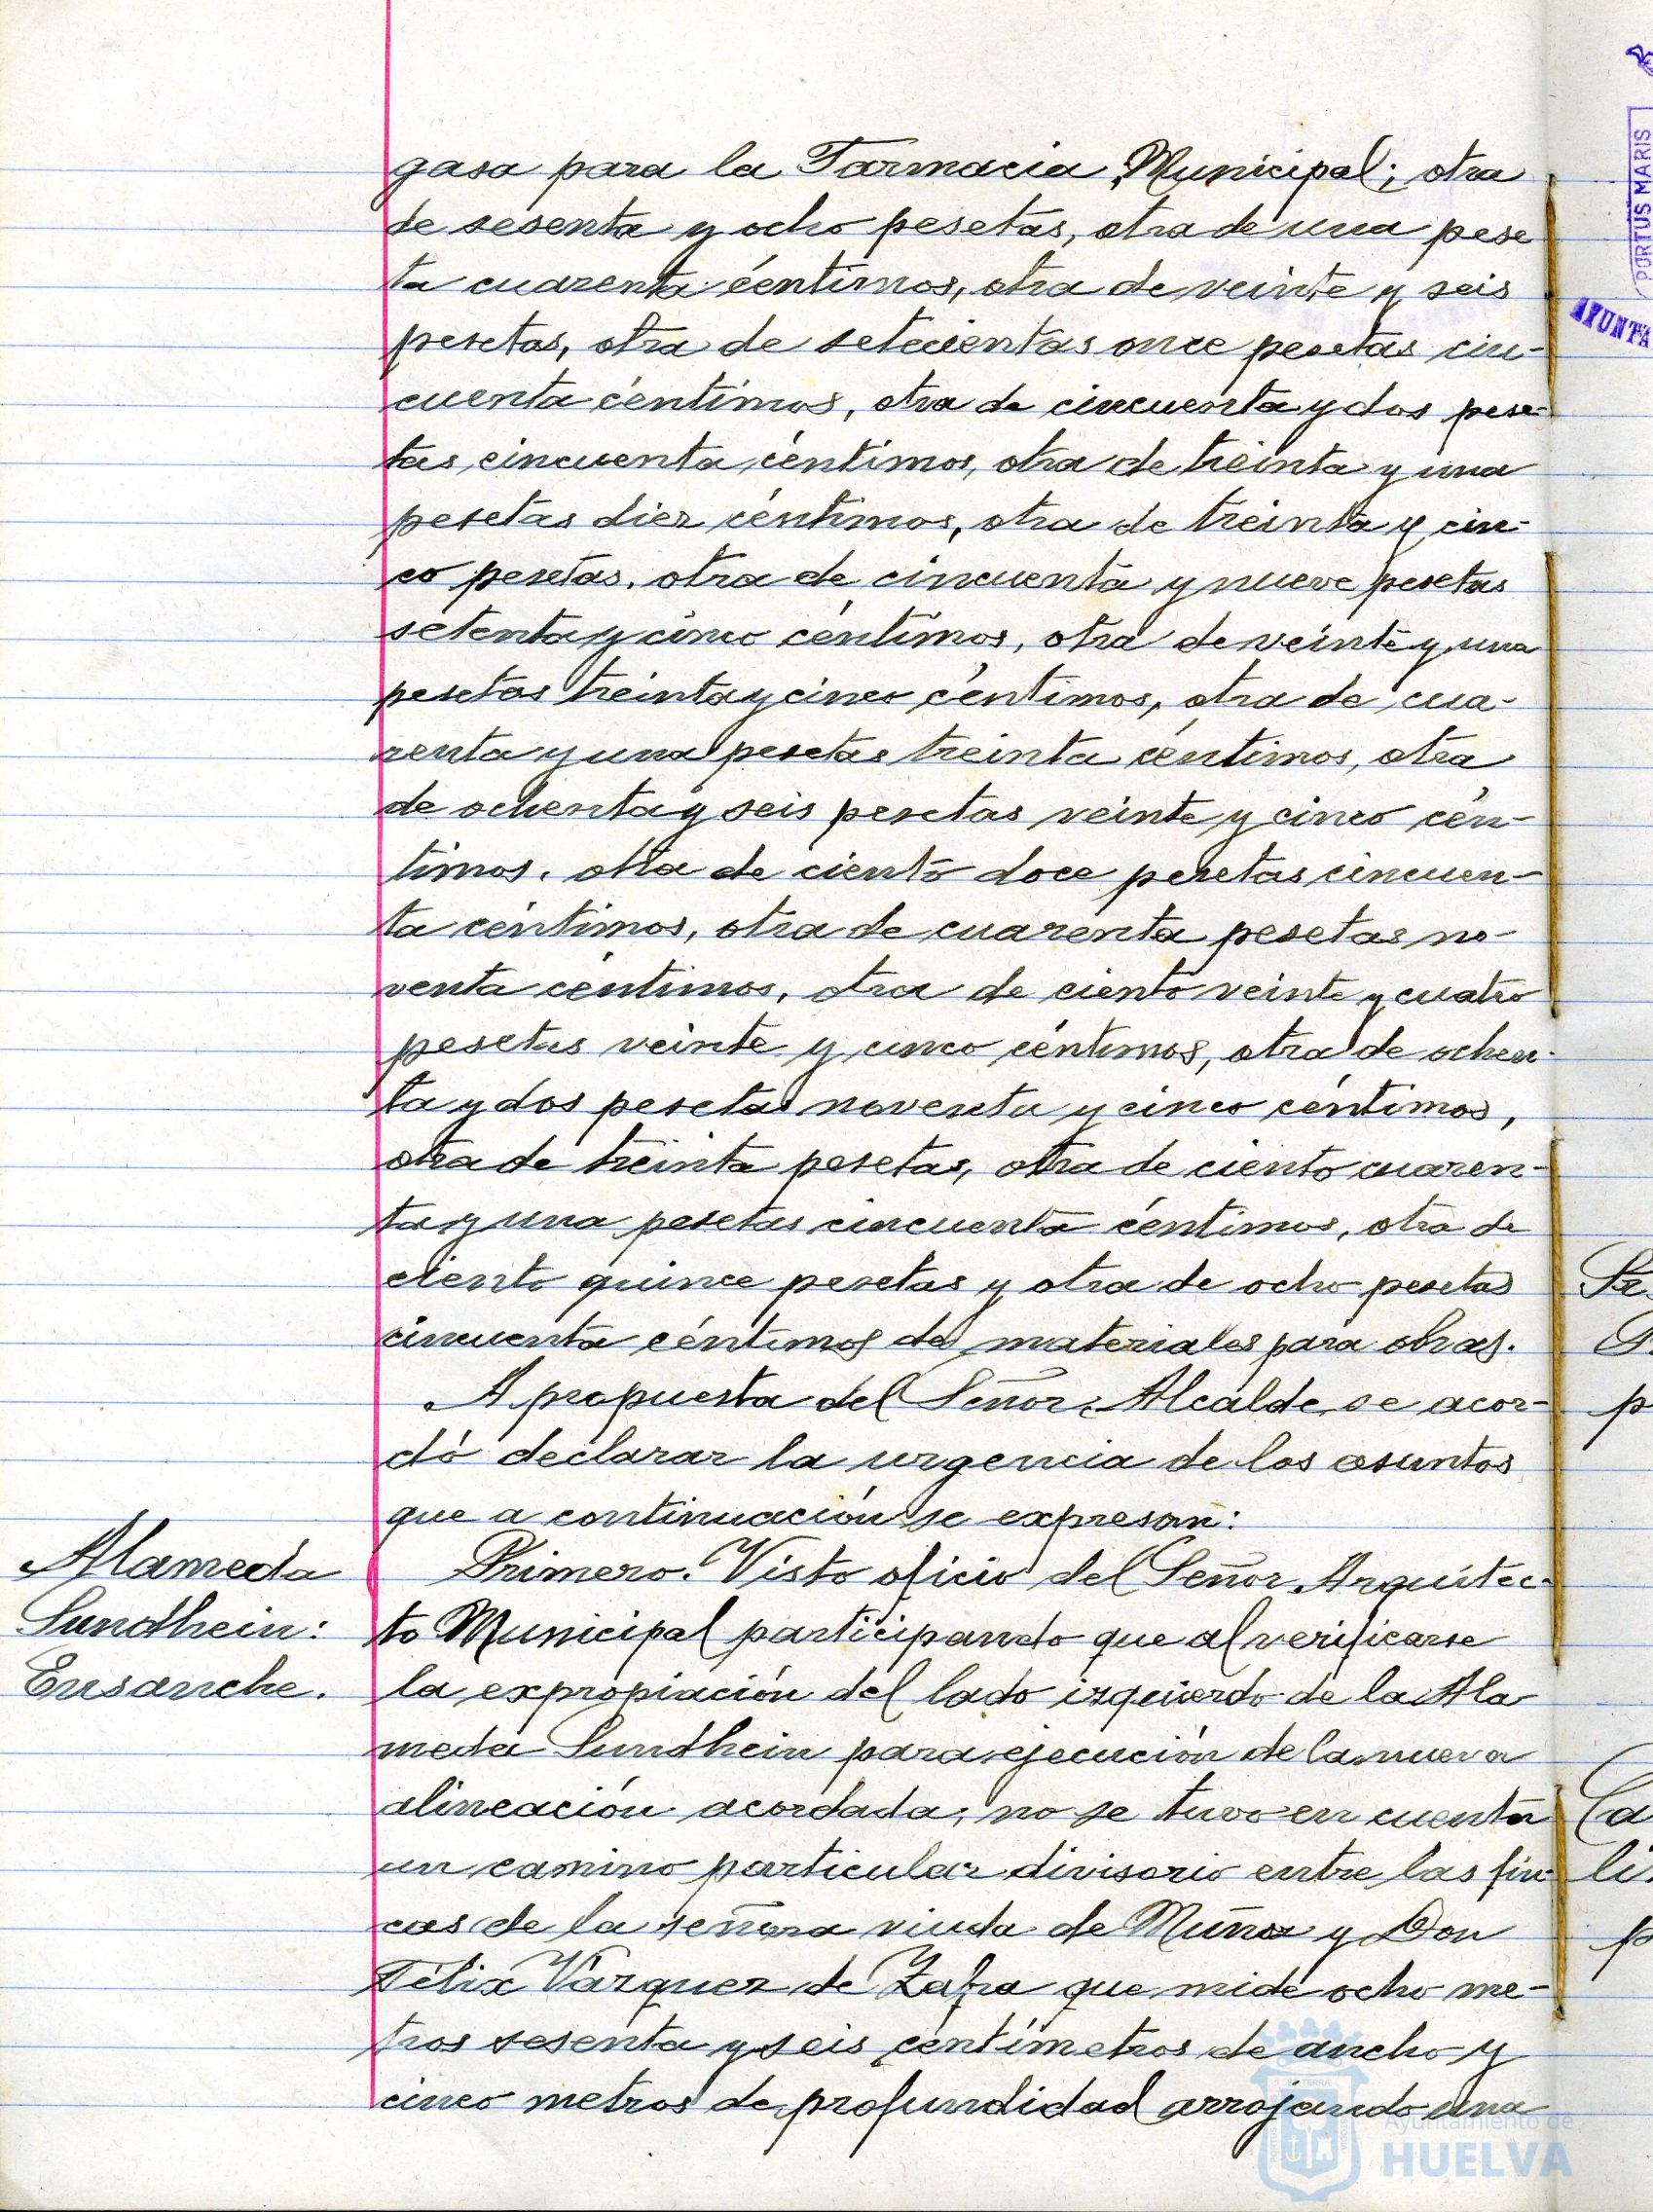 gasa para la Farmacia Municipal; otra
de sesenta y ocho pesetas, otra de una pese
ta cuarenta céntimos, otra de veinte y seis
pesetas, otra de setecientas once pesetas cin-
cuenta céntimos, otra de cincuenta y dos pese-
tas cincuenta céntimos, otra de treinta y una
pesetas diez céntimos, otra de treinta y cin-
co pesetas, otra de cincuenta y nueve pesetas
setenta y cinco céntimos, otra de veinte y una
pesetas treinta y cinco céntimos, otra de cua-
renta y una pesetas treinta céntimos, otra
de ochenta y seis pesetas veinte y cinco cén-
timos, otra de ciento doce pesetas cincuen-
ta céntimos, otra de cuarenta pesetas no-
venta céntimos, otra de ciento veinte y cuatro
pesetas veinte y cinco céntimos, otra de ochen-
ta y dos pesetas noventa y cinco céntimos,
otra de treinta pesetas, otra de ciento cuaren-
ta y una pesetas cincuenta céntimos, otra de
ciento quince pesetas y otra de ocho pesetas
cincuenta céntimos de materiales para obras.
A propuesta del Señor Alcalde se acor-
dó declarar la urgencia de los asuntos
que a continuación se expresan:
Alameda
Sundhein:
Ensanche.
Primero. Visto oficio del Señor Arquitec-
to Municipal participando que al verificarse
la expropiación del lado izquierdo de la Ala
meda Sundhein para ejecución de la nueva
alineación acordada, no se tuvo en cuenta
un camino particular divisorio entre las fin-
cas de la señora viuda de Muñoz y Don
Félix Vázquez de Zafra que mide ocho me-
tros sesenta y seis céntímetros de ancho y
cinco metros de profundidad arrojando una
PORTUS MARIS
AYUNTA
Ayuntamiento de
HUELVA